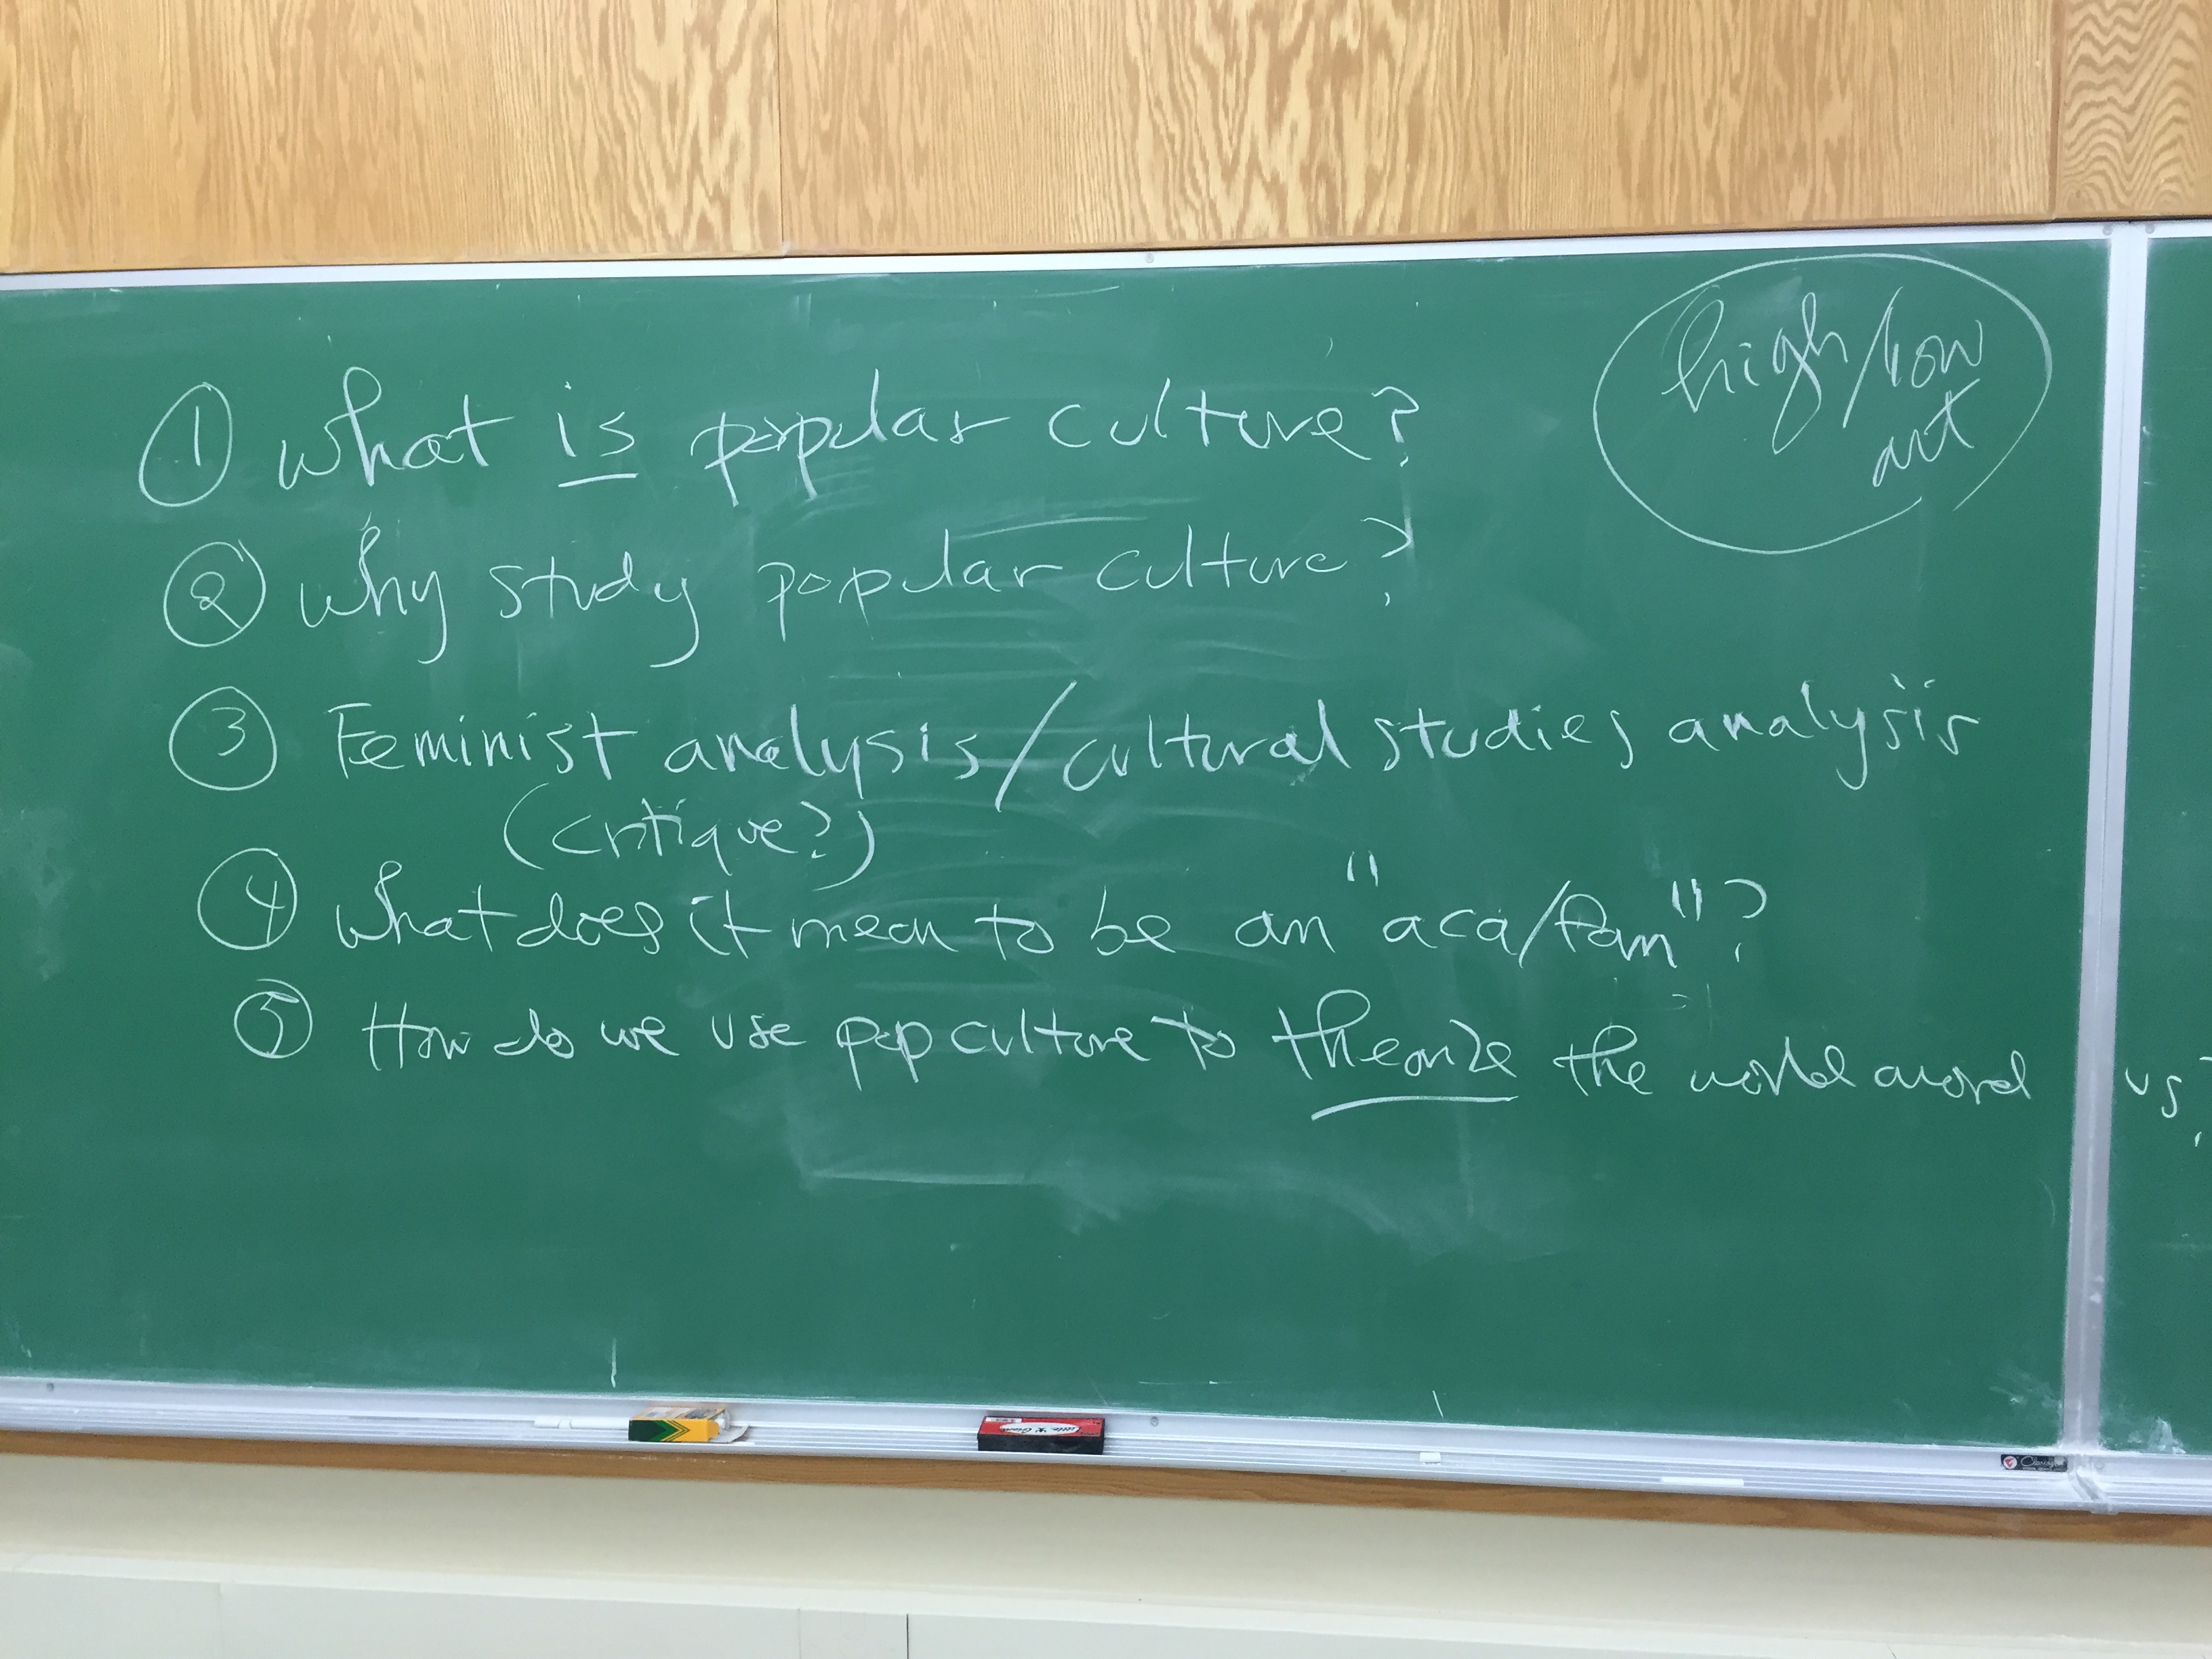 high/low
art
① What is popular culture?
② Why study popular culture?
③ Feminist analysis/cultural studies analysis
(critique?)
④ What does it mean to be an "aca/fan"?
⑤ How do we use pop culture to theorize the world around us?